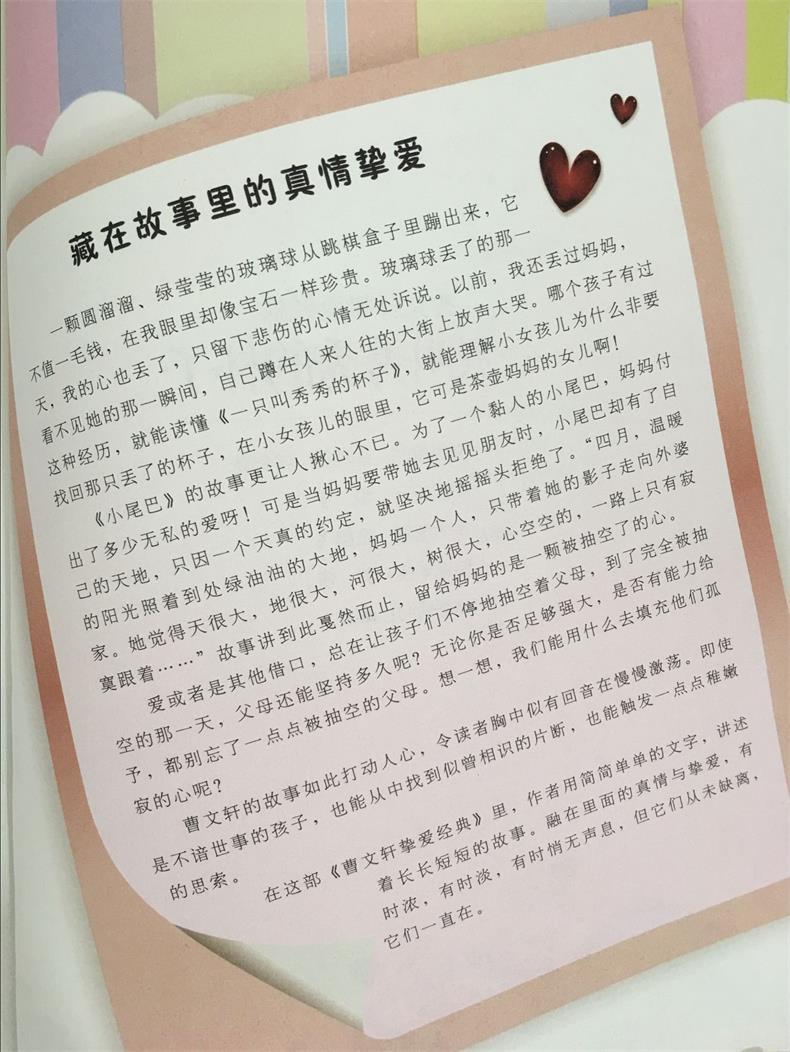 藏在故事里的真情挚爱
一颗圆溜溜、绿莹莹的玻璃球从跳棋盒子里蹦出来，它
不值一毛钱，在我眼里却像宝石一样珍贵。玻璃球丢了的那一
天，我的心也丢了，只留下悲伤的心情无处诉说。以前，我还丢过妈妈，
看不见她的那一瞬间，自己蹲在人来人往的大街上放声大哭。哪个孩子有过
这种经历，就能读懂《一只叫秀秀的杯子》，就能理解小女孩儿为什么非要
找回那只丢了的杯子，在小女孩儿的眼里，它可是茶壶妈妈的女儿啊！
《小尾巴》的故事更让人揪心不已。为了一个黏人的小尾巴，妈妈付
出了多少无私的爱呀！可是当妈妈要带她去见见朋友时，小尾巴却有了自
己的天地，只因一个天真的约定，就坚决地摇摇头拒绝了。“四月，温暖
的阳光照着到处绿油油的大地，妈妈一个人，只带着她的影子走向外婆
家。她觉得天很大，地很大，河很大，树很大，心空空的，一路上只有寂
寞跟着……”故事讲到此戛然而止，留给妈妈的是一颗被抽空了的心。
爱或者是其他借口，总在让孩子们不停地抽空着父母，到了完全被抽
空的那一天，父母还能坚持多久呢？无论你是否足够强大，是否有能力给
予，都别忘了一点点被抽空的父母。想一想，我们能用什么去填充他们孤
寂的心呢？
曹文轩的故事如此打动人心，令读者胸中似有回音在慢慢激荡。即使
是不谙世事的孩子，也能从中找到似曾相识的片断，也能触发一点点稚嫩
的思索。
在这部《曹文轩挚爱经典》里，作者用简简单单的文字，讲述
着长长短短的故事。融在里面的真情与挚爱，有
时浓，有时淡，有时悄无声息，但它们从未缺离，
它们一直在。